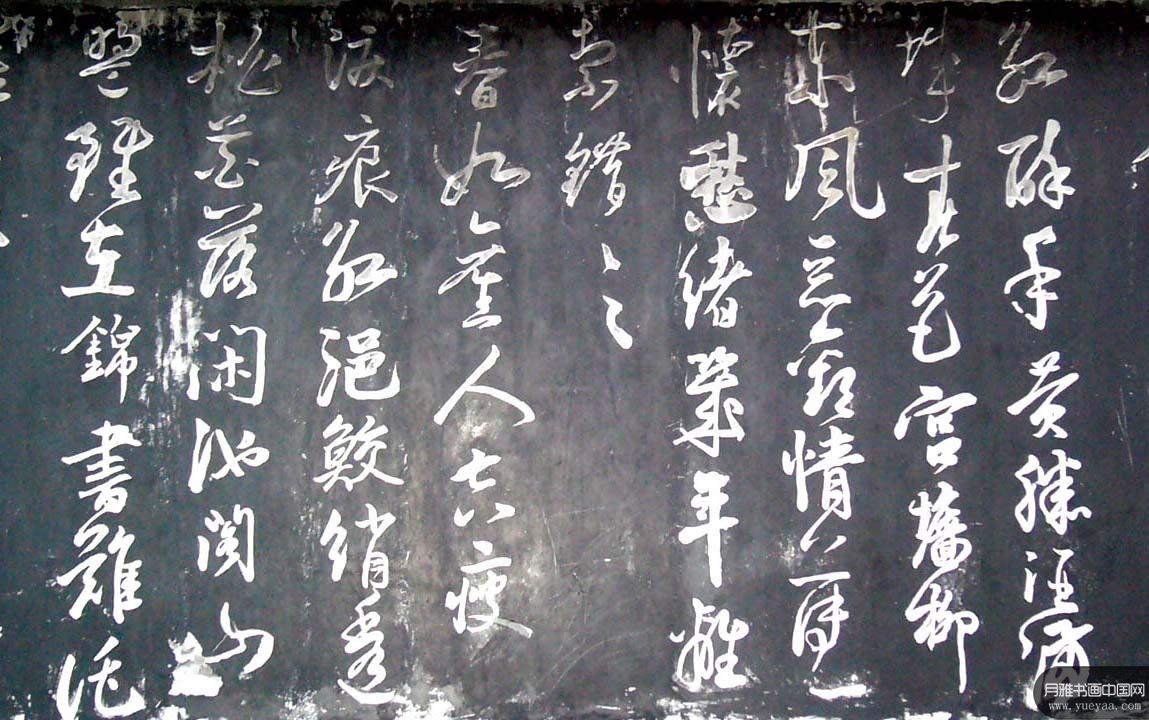 紅酥手黃縢酒滿
城春色宮牆柳
東風惡歡情薄一
懷愁緒幾年離
索錯々々
春如舊人空瘦
淚痕紅浥鮫綃透
桃花落閑池閣山
盟雖在錦書難託
月雅书画中国网
www.yueyaa.com